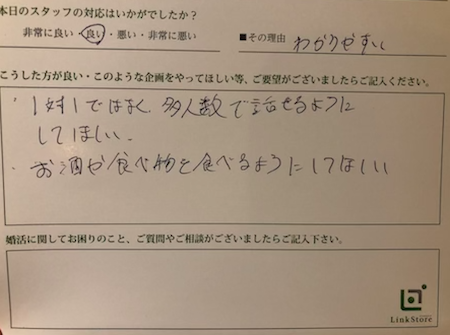 本日のスタッフの対応はいかがでしたか？
非常に良い・良い・悪い・非常に悪い ■その理由 わかりやすい
こうした方が良い・このような企画をやってほしい等、ご要望がございましたらご記入ください。
・1対1ではなく、多人数で話せるように
してほしい.
・お酒か食べ物を食べるようにしてほしい
婚活に関してお困りのこと、ご質問やご相談がございましたらご記入下さい。
LinkStore